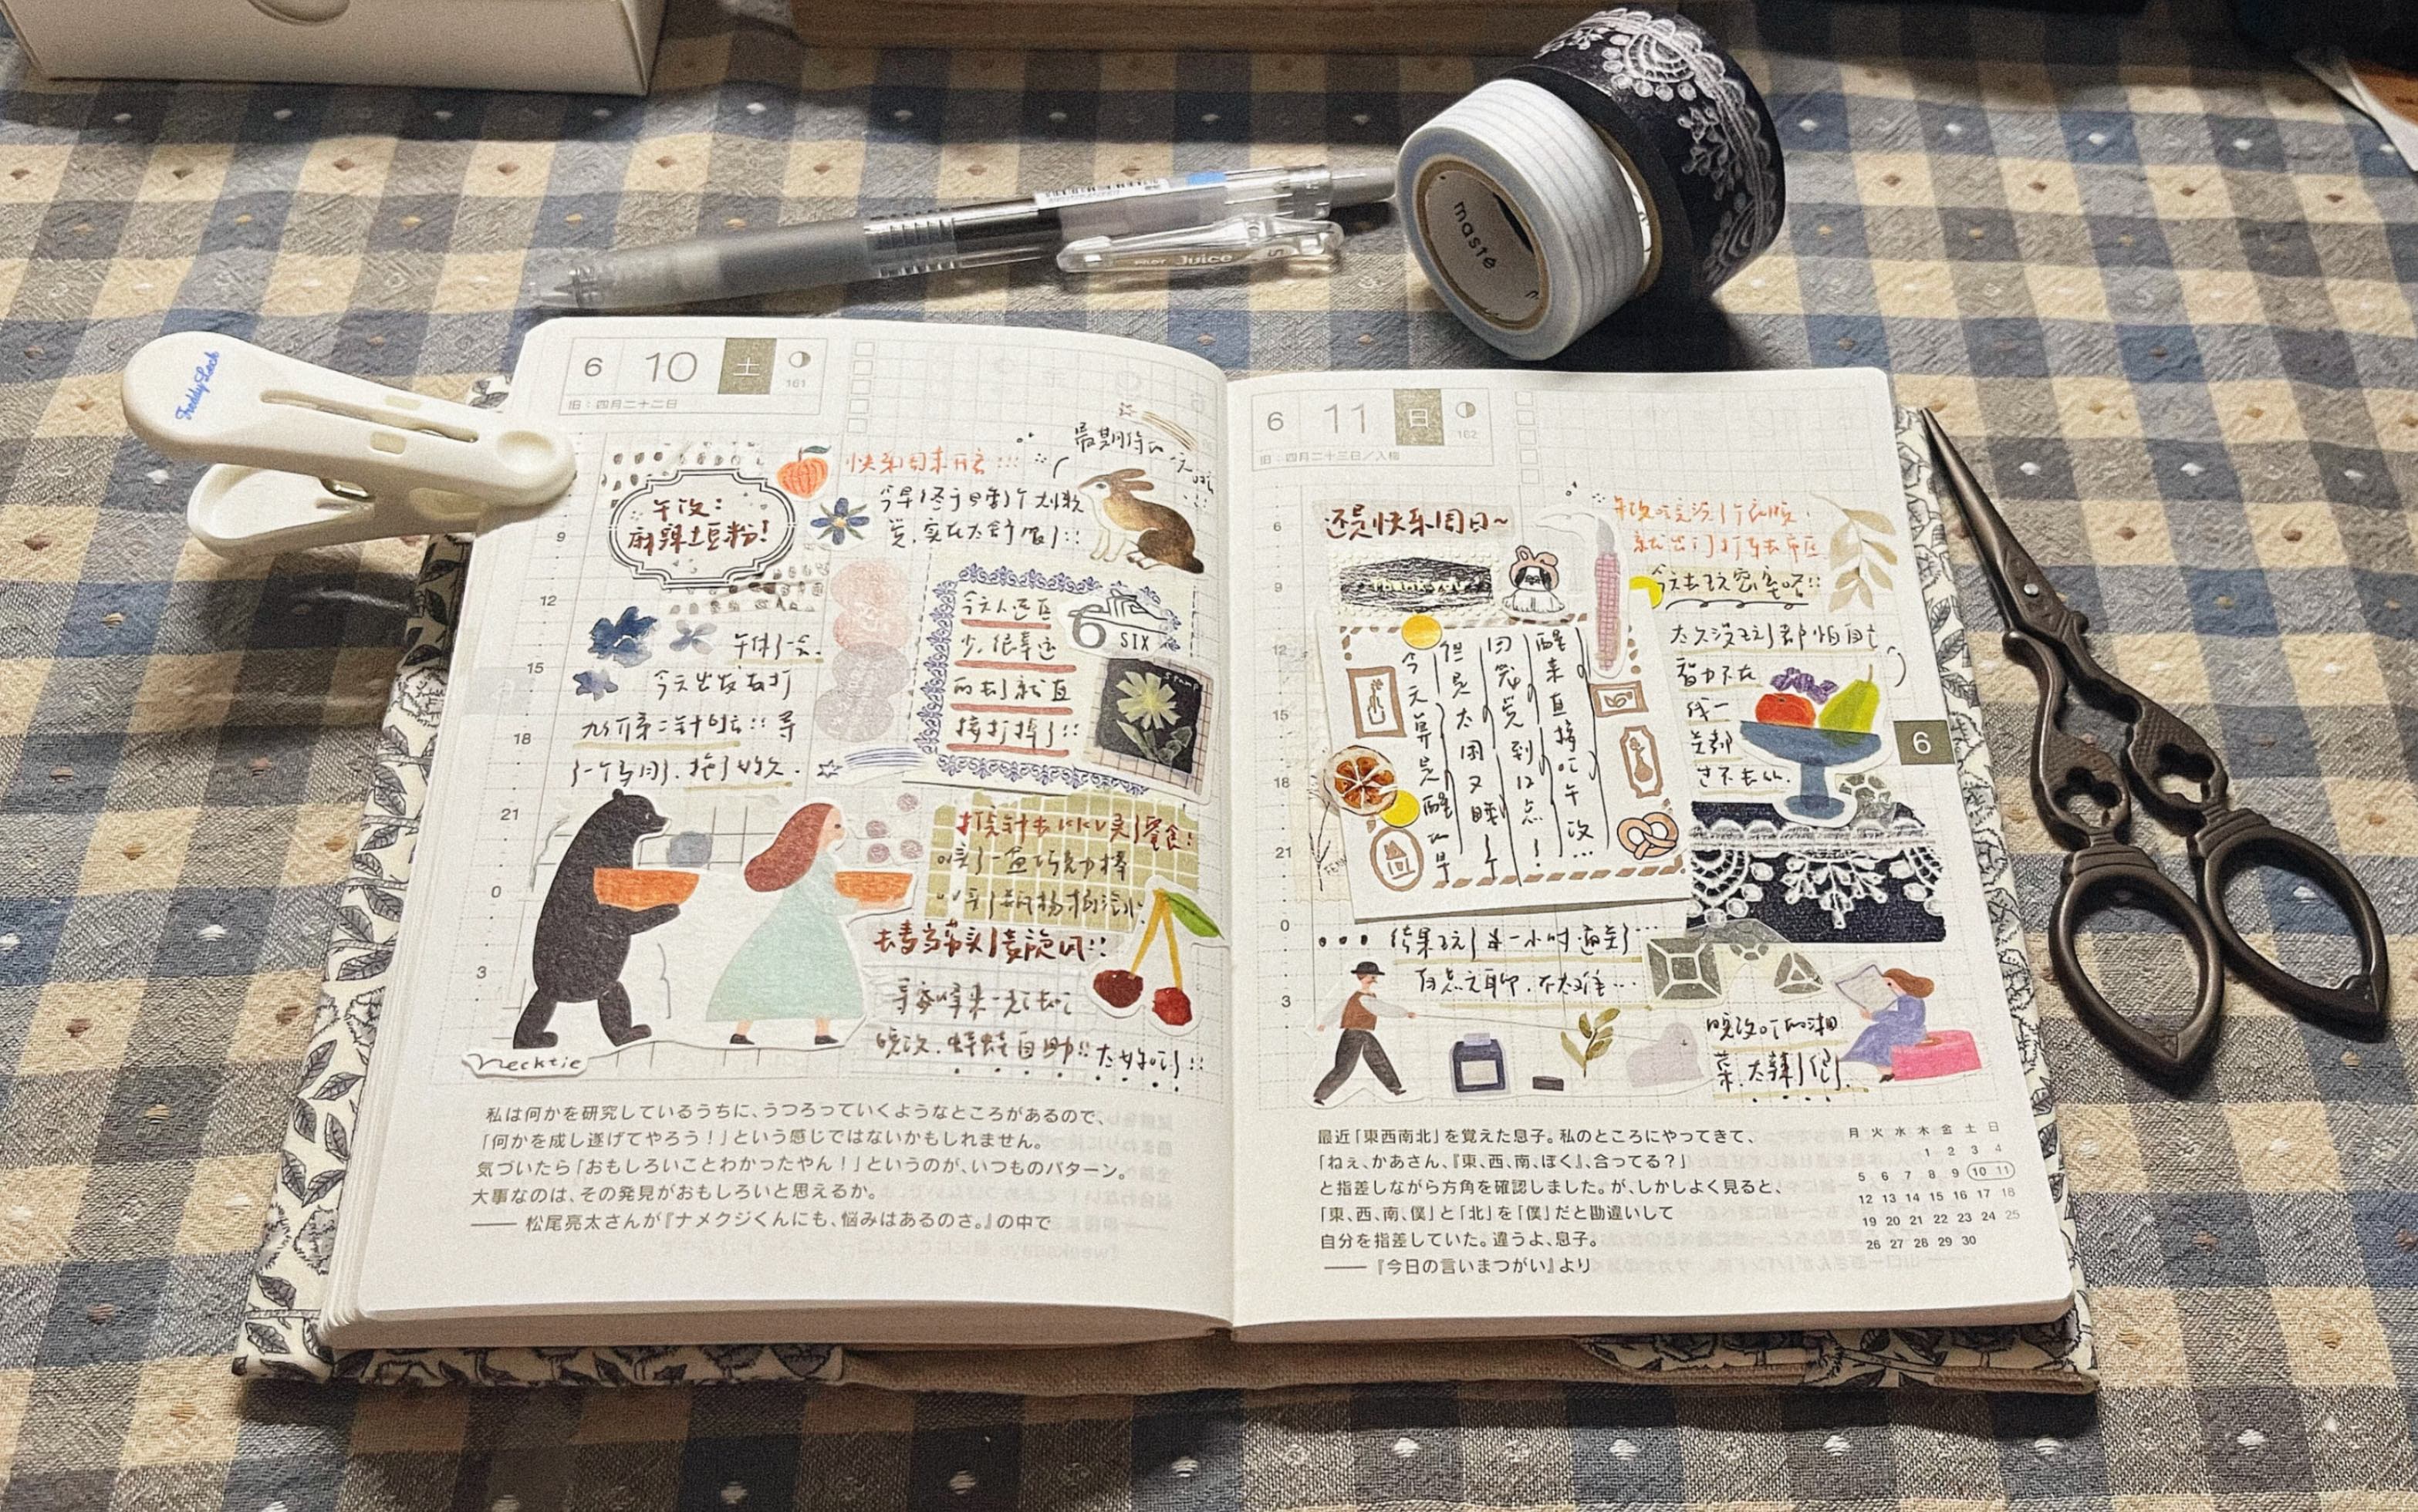 Freddy Leck
PILOT Juice 5
masté
6 10 土
161
旧：四月二十二日
快乐周末开启:::
最期待的一天
午后:
麻辣土豆粉!
今早终于睡了个
觉,实在太舒服了::
9
12
15
18
21
0
3
午休了一会.
今天出发去打
九价第二针啦::: 等
了一个多月,拖了好久.
今天人还真
少,很幸运
的去了就直
接打掉了::
6 SIX
stamp
打完针去 买了零食:
一盒巧克力棒
去 接 ::
晚饭,蛙蛙自助!! 太好吃了::
necktie
私は何かを研究しているうちに、うつろっていくようなところがあるので、
「何かを成し遂げてやろう！」という感じではないかもしれません。
気づいたら「おもしろいことわかったやん！」というのが、いつものパターン。
大事なのは、その発見がおもしろいと思えるか。
―― 松尾亮太さんが『ナメクジくんにも、悩みはあるのさ。』の中で
6 11 日
162
旧：四月二十三日／入梅
6
9
12
15
18
21
0
3
还是快乐周日~
Thank you
午饭吃完洗了个衣服,
就出门打车去市区
今天去玩密室咯!!
太久没玩了都怕自己
智力不在
线一
点都
过不去公.
6
今天算是醒的早
但是太困又睡了个
回笼觉到12点!
醒来直接吃午饭...
••• 结果玩了半一小时通关了...
有点无聊,不太难...
晚饭吃的湘
菜,太辣了很!
最近「東西南北」を覚えた息子。私のところにやってきて、
「ねぇ、かあさん、『東、西、南、ぼく』、合ってる？」
と指差しながら方角を確認しました。が、しかしよく見ると、
「東、西、南、僕」と「北」を「僕」だと勘違いして
自分を指差していた。違うよ、息子。
―― 『今日の言いまつがい』より
月 火 水 木 金 土 日
1 2 3 4
5 6 7 8 9 10 11
12 13 14 15 16 17 18
19 20 21 22 23 24 25
26 27 28 29 30